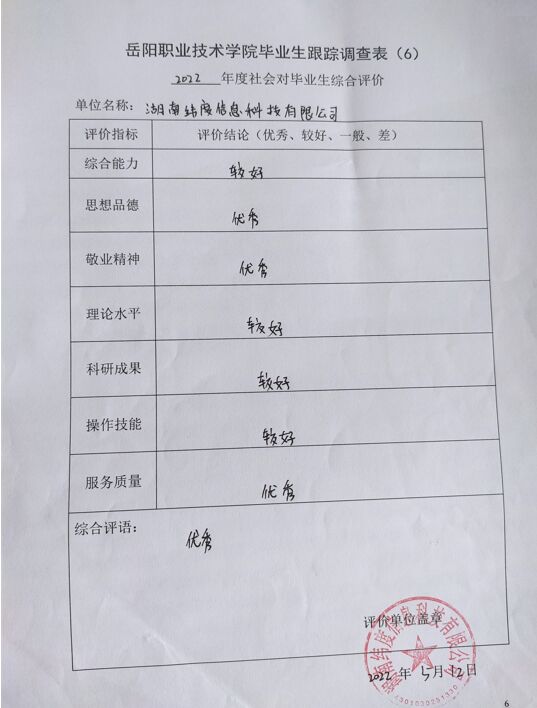 岳阳职业技术学院毕业生跟踪调查表（6）
2022 年度社会对毕业生综合评价
单位名称：湖南纬度信息科技有限公司
评价指标 评价结论（优秀、较好、一般、差）
综合能力 较好
思想品德 优秀
敬业精神 优秀
理论水平 较好
科研成果 较好
操作技能 较好
服务质量 优秀
综合评语：
优秀
评价单位盖章
湖南纬度信息科技有限公司
2022 年 5 月 12 日
6